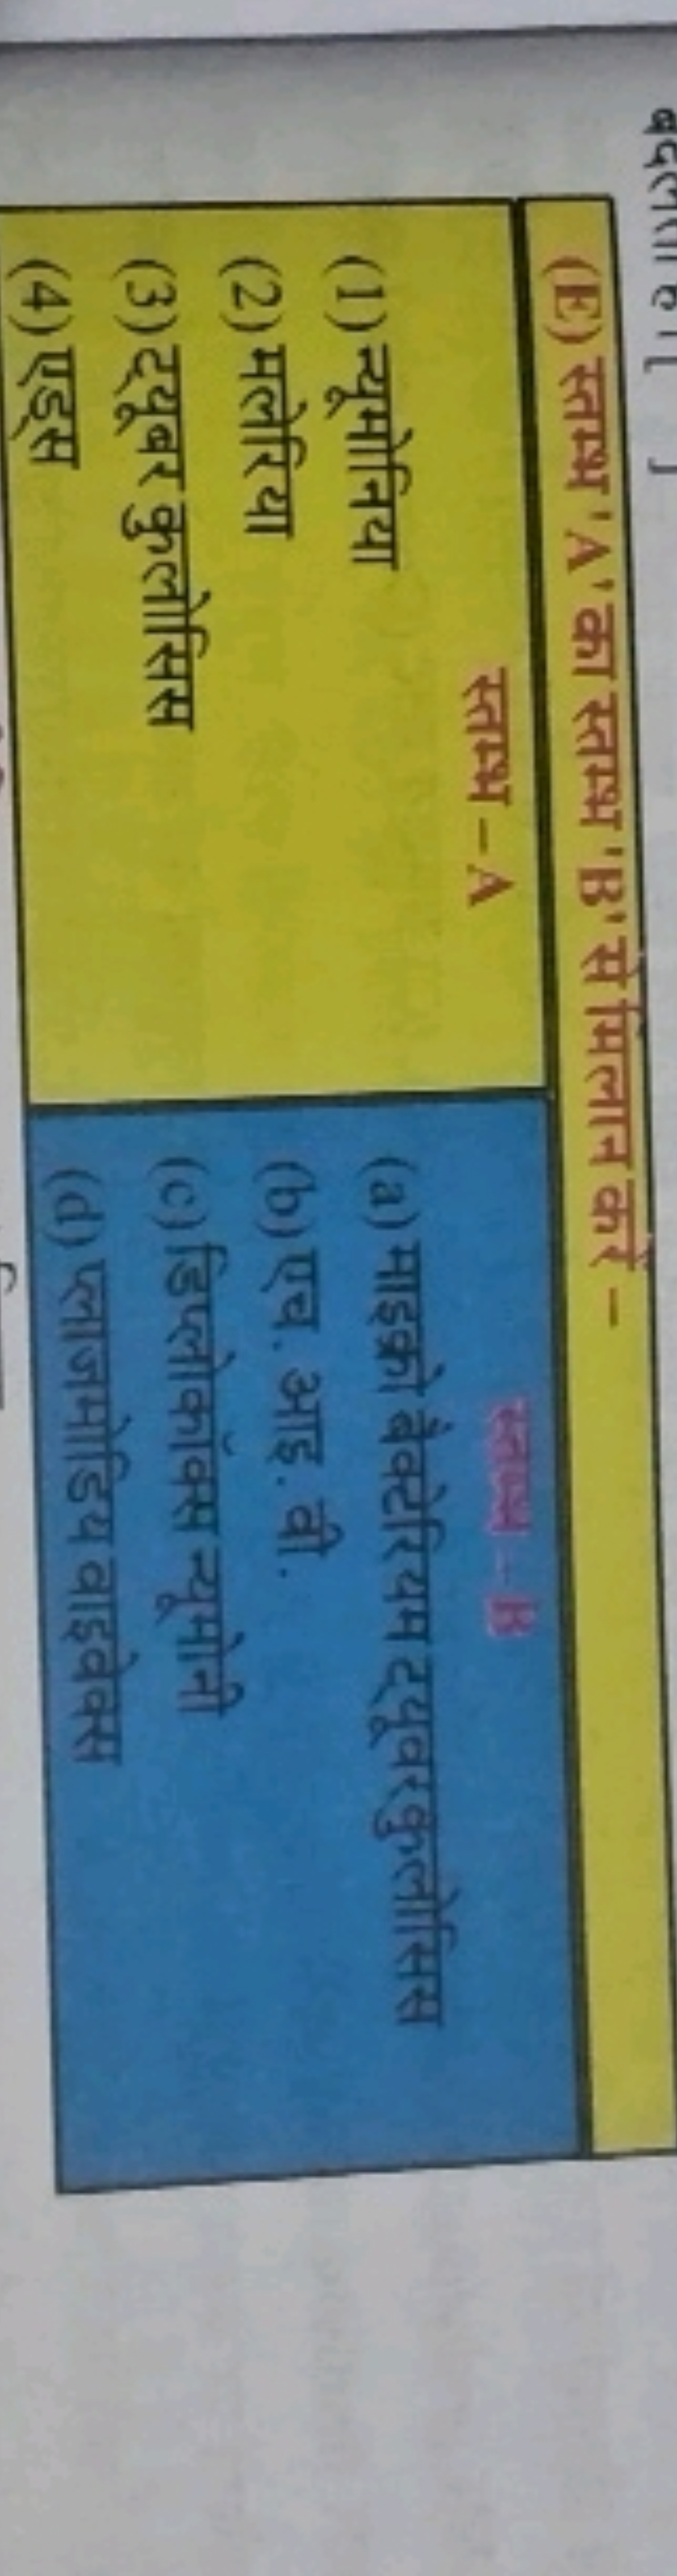 (E) स्तम्भ 'A' का स्तम्भ 'B' से मिलान करें –
स्तम्भ – A
(1) न्यूमोनिया
(2) मलेरिया
(3) ट्यूबर कुलोसिस
(4) एड्स
स्तम्भ – B
(a) माइक्रो बैक्टेरियम ट्यूवरकुलोसिस
(b) एच. आइ. वी.
(c) डिप्लोकॉक्स न्यूमोनी
(d) प्लाजमोडिय वाइवेक्स